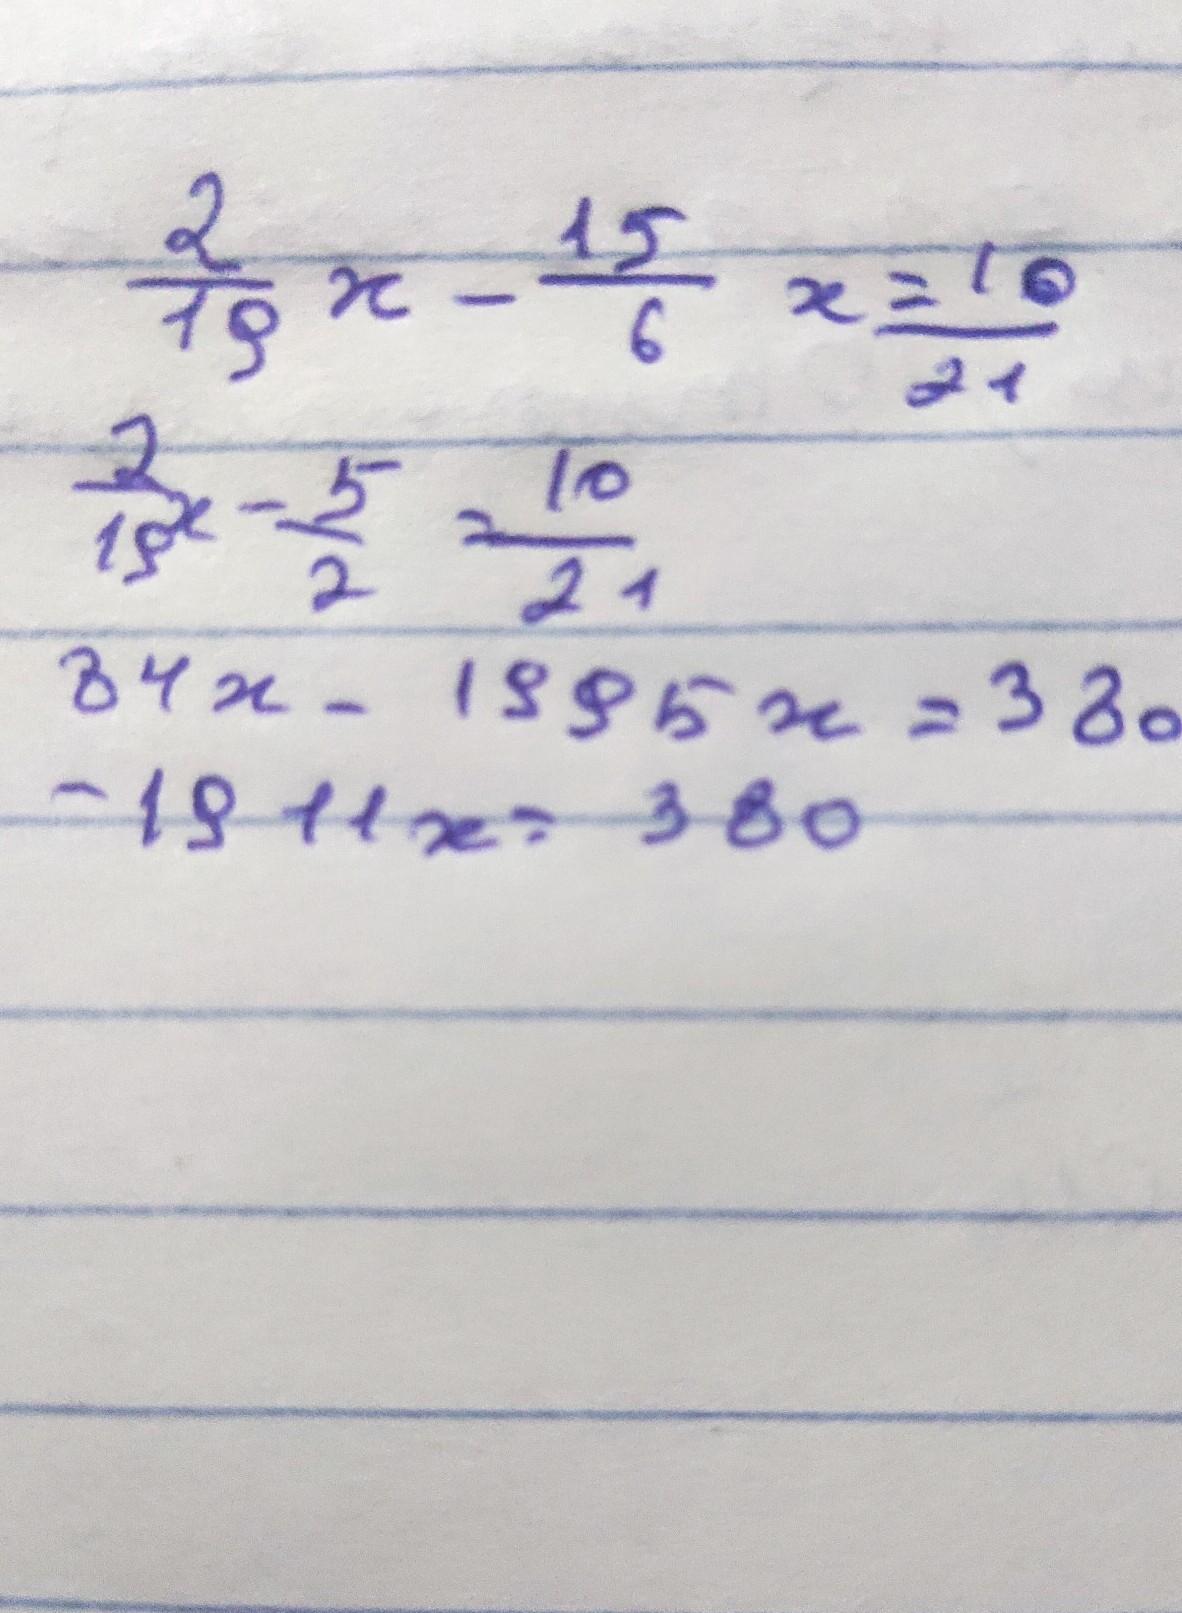 2/19 x - 15/6 x = 10/21
2/19 x - 5/2 = 10/21
84x - 1995x = 380
-1911x = 380